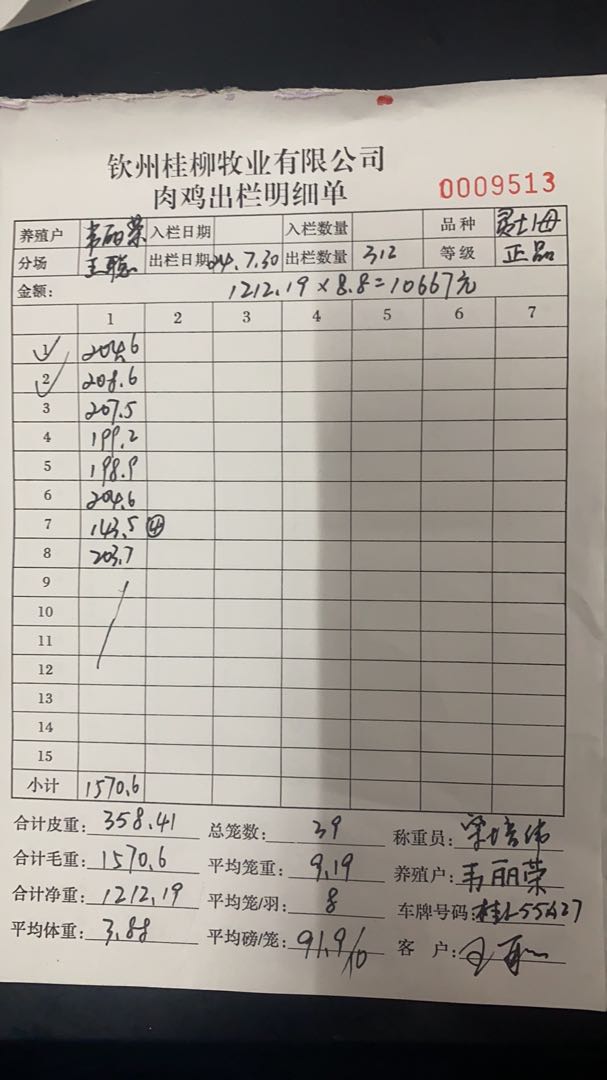 钦州桂柳牧业有限公司
肉鸡出栏明细单 0009513
养殖户 韦丽荣 入栏日期 入栏数量 品种 灵士1母
分场 王聪 出栏日期 24.7.30 出栏数量 312 等级 正品
金额: 1212.19×8.8=10667元
1 2 3 4 5 6 7
1 204.6
2 208.6
3 207.5
4 199.2
5 198.9
6 204.6
7 143.5 ④
8 203.7
9
10
11
12
13
14
15
小计 1570.6
合计皮重: 358.41 总笼数: 39 称重员:
合计毛重: 1570.6 平均笼重: 9.19 养殖户: 韦丽荣
合计净重: 1212.19 平均笼/羽: 8 车牌号码:
平均体重: 3.88 平均磅/笼: 91.9/10 客户: